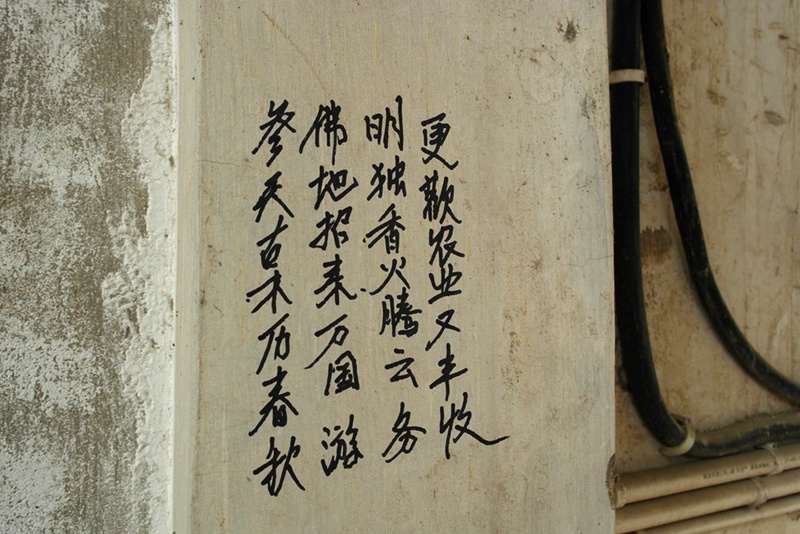 参天古木历春秋
佛地招来万国游
明独香火腾云务
更歡农业又丰收